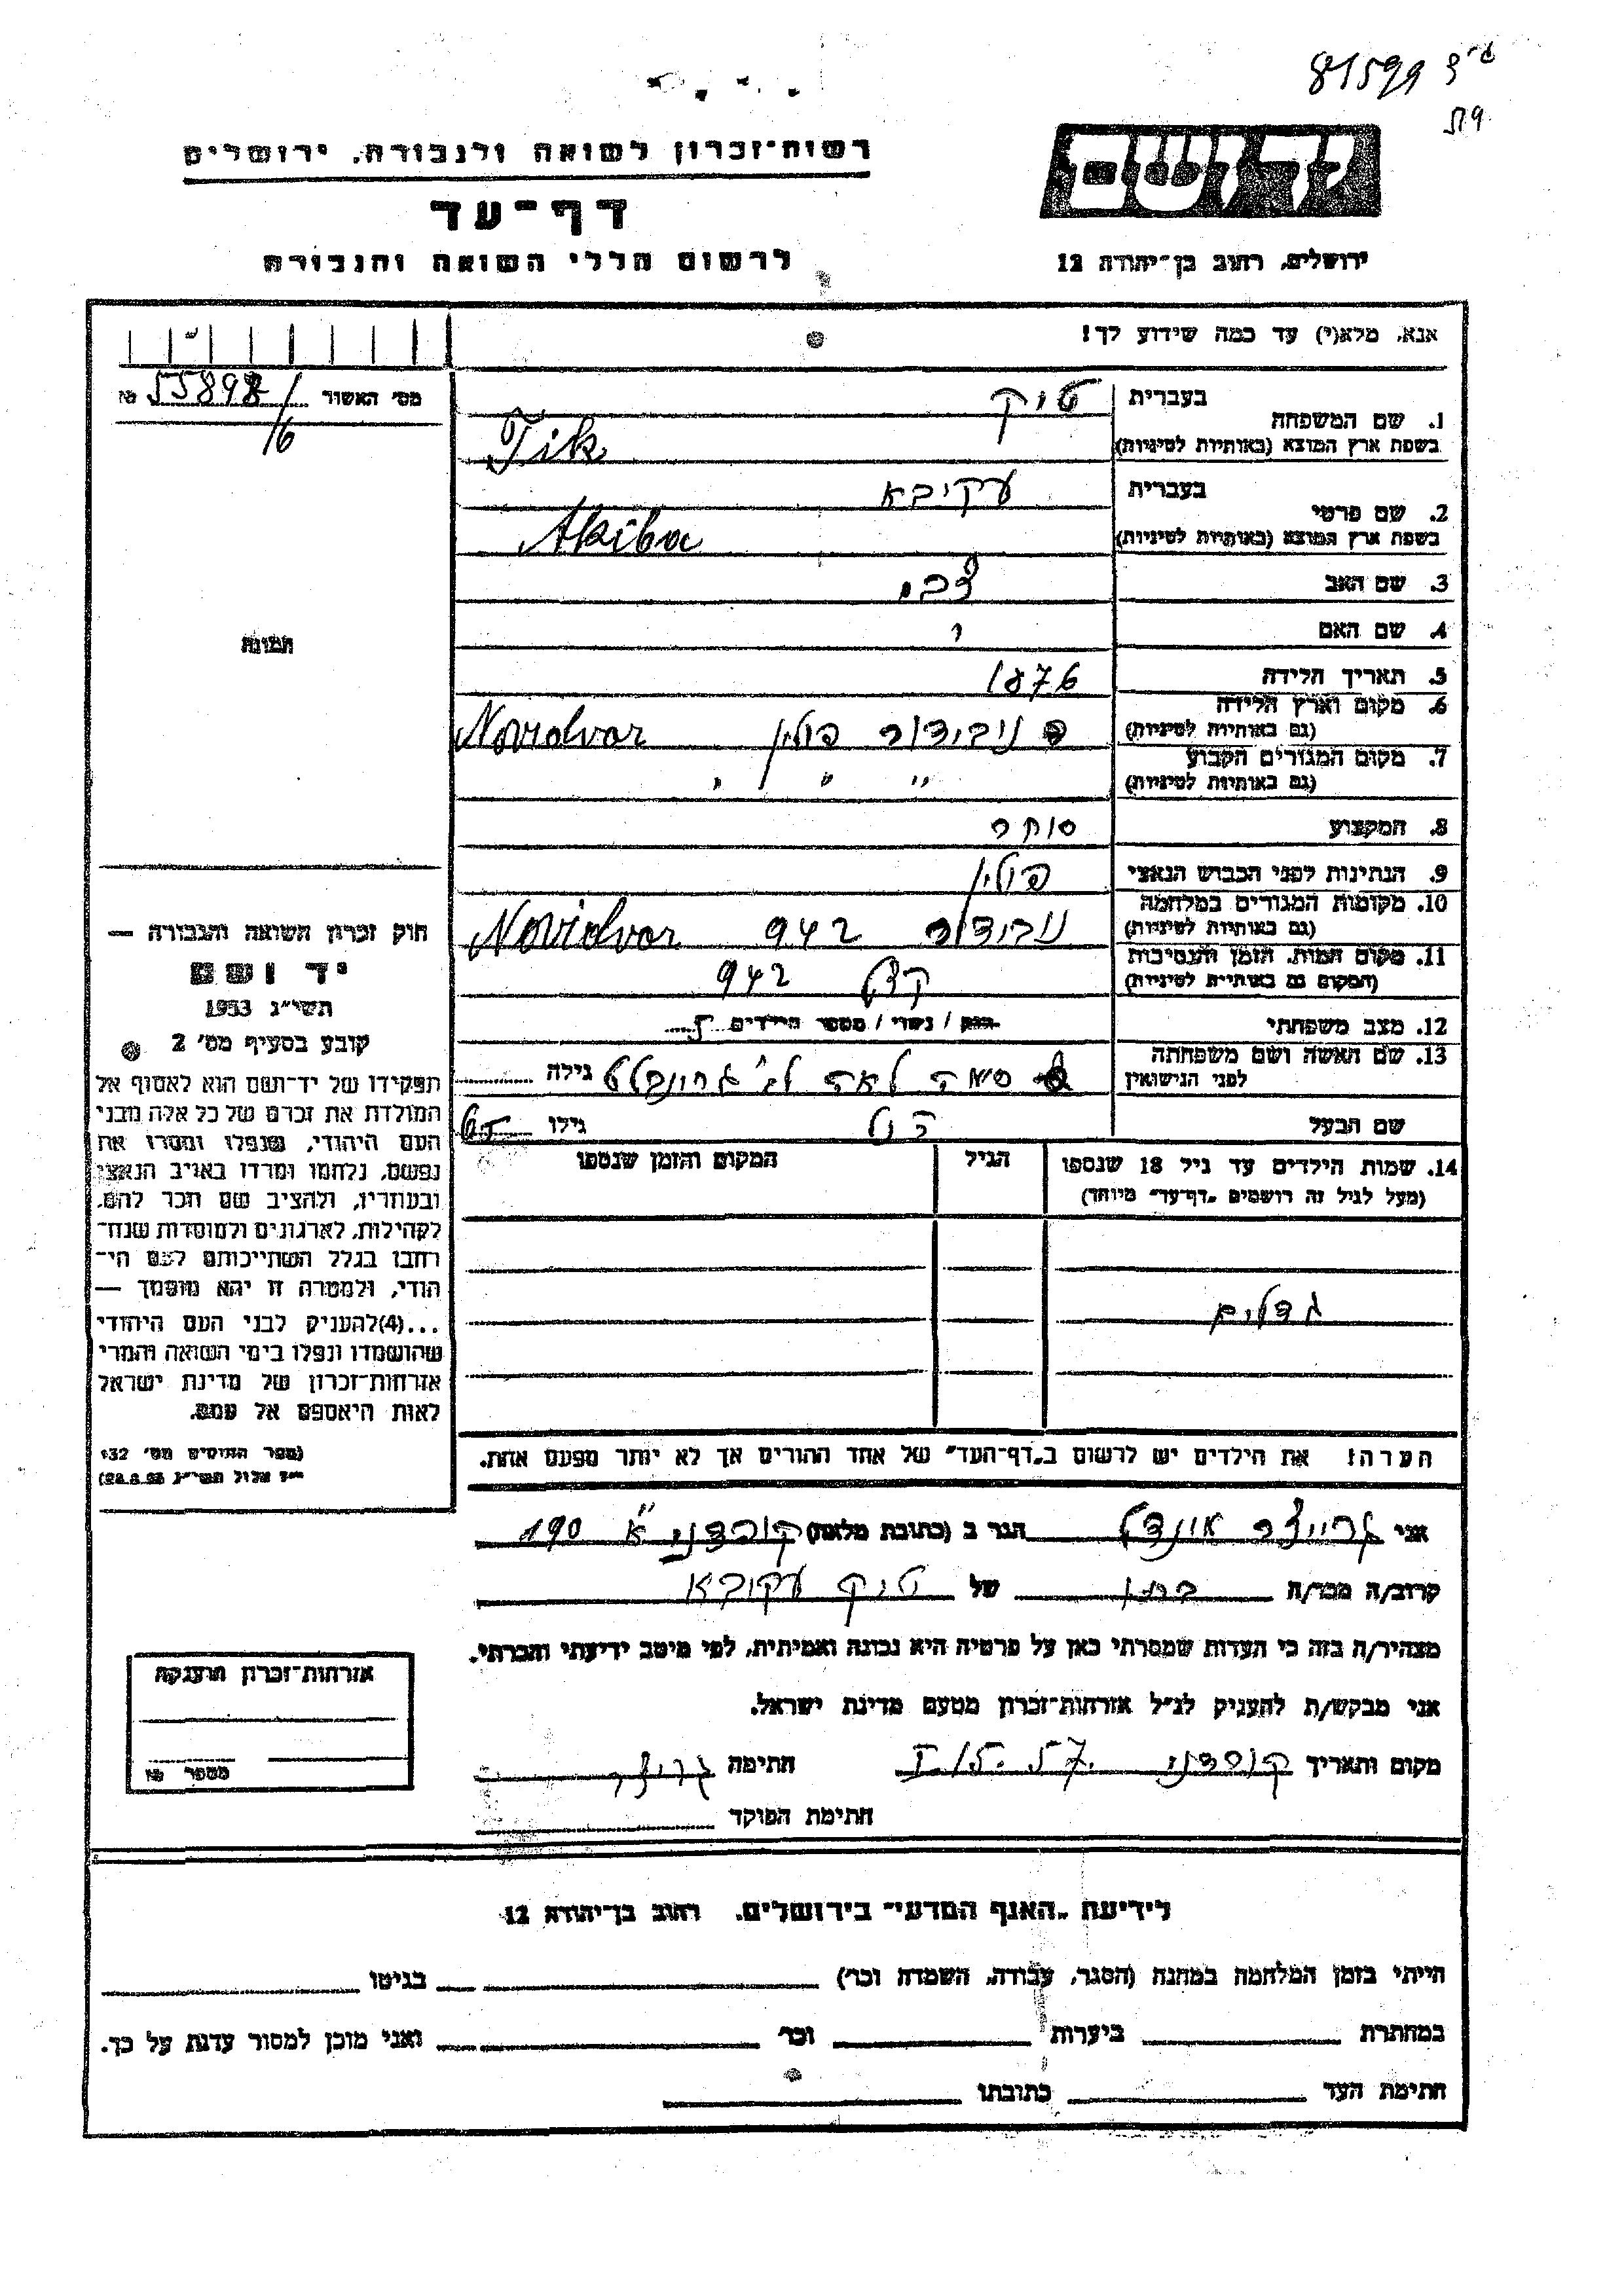 81599
רשות־זכרון לשואה ולגבורה, ירושלים
דף־עד
לרשום חללי השואה והגבורה
ידושם
ירושלים, רחוב בן־יהודה 12
אנא, מלא(י) עד כמה שידוע לך!
מס׳ האשור 55898 №
/6
1. שם המשפחה
בעברית טיק
בשפת ארץ המוצא (באותיות לטיניות) Tik
2. שם פרטי
בעברית עקיבא
בשפת ארץ המוצא (באותיות לטיניות) Akiba
3. שם האב צבי
4. שם האם
5. תאריך הלידה 1876
6. מקום וארץ הלידה
(גם באותיות לטיניות) נובידבור פולין Novidvor
7. מקום המגורים הקבוע
(גם באותיות לטיניות) " " "
8. המקצוע סוחר
9. הנתינות לפני הכבוש הנאצי פולין
10. מקומות המגורים במלחמה
(גם באותיות לטיניות) נובידבור 942 Novidvor
11. מקום המות, הזמן והנסיבות
(המקום גם באותיות לטיניות) 942
12. מצב משפחתי רווק / נשוי / מספר הילדים 5
13. שם האשה ושם משפחתה
לפני הנישואין לאה גילה
שם הבעל גילו 65
14. שמות הילדים עד גיל 18 שנספו
(מעל לגיל זה רושמים „דף־עד״ מיוחד)
הגיל
המקום והזמן שנספו
גדולים
הערה! את הילדים יש לרשום ב„דף־העד״ של אחד ההורים אך לא יותר מפעם אחת.
תמונה
חוק זכרון השואה והגבורה —
יד ושם
תשי״ג 1953
קובע בסעיף מס׳ 2
תפקידו של יד־ושם הוא לאסוף אל
המולדת את זכרם של כל אלה מבני
העם היהודי, שנפלו ומסרו את
נפשם, נלחמו ומרדו באויב הנאצי
ובעוזריו, ולהציב שם וזכר להם,
לקהילות, לארגונים ולמוסדות שנח־
רחבו בגלל השתייכותם לעם הי־
הודי, ולמטרה זו יהא מוסמך —
...(4) להעניק לבני העם היהודי
שהושמדו ונפלו בימי השואה והמרי
אזרחות־זכרון של מדינת ישראל
לאות היאספם אל עמם.
(ספר החוקים מס׳ 132
י״ז אלול תשי״ג 28.8.53)
אני הגר ב (כתובת מלאה) קורדני א׳ 190
קרוב/ה מכר/ה של טיק עקיבא
מצהיר/ה בזה כי העדות שמסרתי כאן על פרטיה היא נכונה ואמיתית, לפי מיטב ידיעתי והכרתי.
אני מבקש/ת להעניק לנ״ל אזרחות־זכרון מטעם מדינת ישראל.
מקום ותאריך קורדני חתימה
חתימת הפוקד
אזרחות־זכרון מוענקת
מספר №
לידיעת „האגף המדעי״ בירושלים, רחוב בן־יהודה 12
הייתי בזמן המלחמה במחנה (הסגר, עבודה, השמדה וכו׳) בגיטו
במחתרת ביערות וכו׳ ואני מוכן למסור עדות על כך.
חתימת העד כתובתו